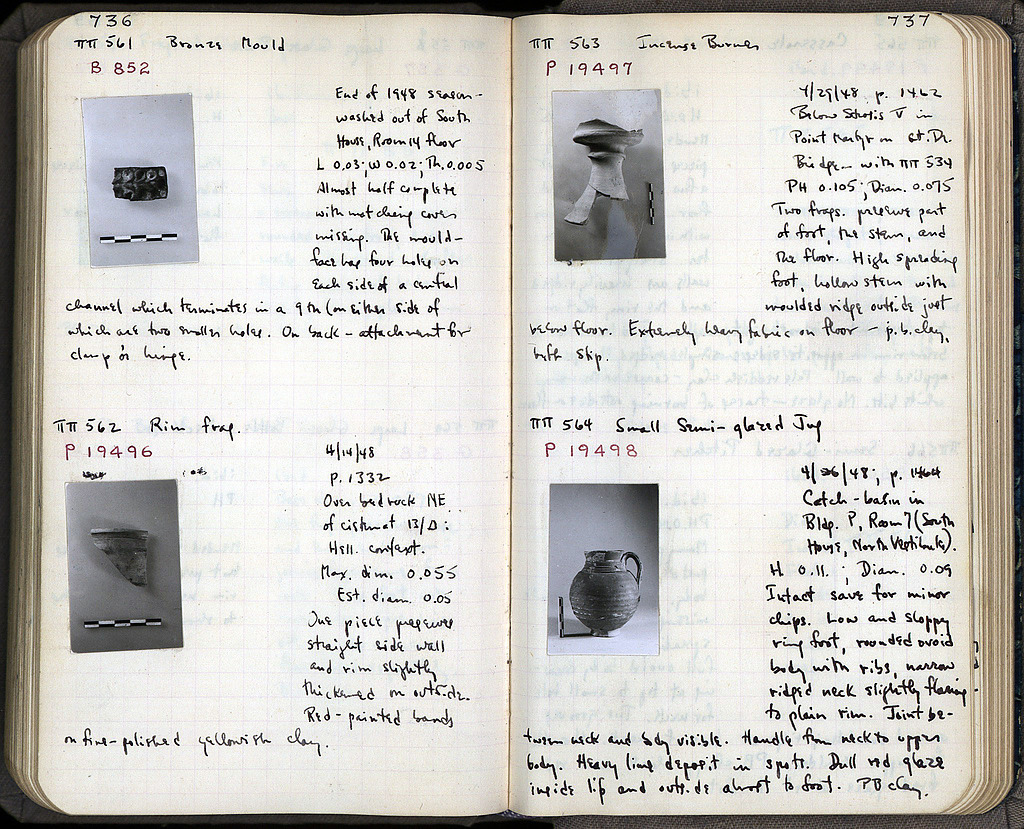 736
ΠΠ 561 Bronze Mould
B 852
End of 1948 season -
washed out of South
House, Room 14 floor
L 0.03; W 0.02; Th. 0.005
Almost half complete
with matching cover
missing. The mould-
face has four holes on
each side of a central
channel which terminates in a 9th (on either side of
which are two smaller holes. On back - attachment for
clamp or hinge.
ΠΠ 562 Rim frag.
P 19496
4/14/48
p. 1332
Over bedrock NE
of cistern at 13/Δ:
Hell. context.
Max. dim. 0.055
Est. diam. 0.05
One piece preserves
straight side wall
and rim slightly
thickened on outside.
Red-painted bands
on fine-polished yellowish clay.
737
ΠΠ 563 Incense Burner
P 19497
4/29/48 p. 1462
Below Strosis V in
Point Martyr on St. Dr.
Bridge - with ΠΠ 534
PH 0.105; Diam. 0.075
Two frags. preserve part
of foot, the stem, and
the floor. High spreading
foot, hollow stem with
moulded ridge outside just
below floor. Extremely heavy fabric on floor - p.b. clay,
buff slip.
ΠΠ 564 Small Semi-glazed Jug
P 19498
4/ /48; p. 1464
Catch-basin in
Bldg. P, Room 7 (South
House, North Vestibule).
H. 0.11. ; Diam. 0.09
Intact save for minor
chips. Low and sloppy
ring foot, rounded ovoid
body with ribs, narrow
ridged neck slightly flaring
to plain rim. Joint be-
tween neck and body visible. Handle from neck to upper
body. Heavy lime deposit in spots. Dull red glaze
inside lip and outside almost to foot. PB clay.